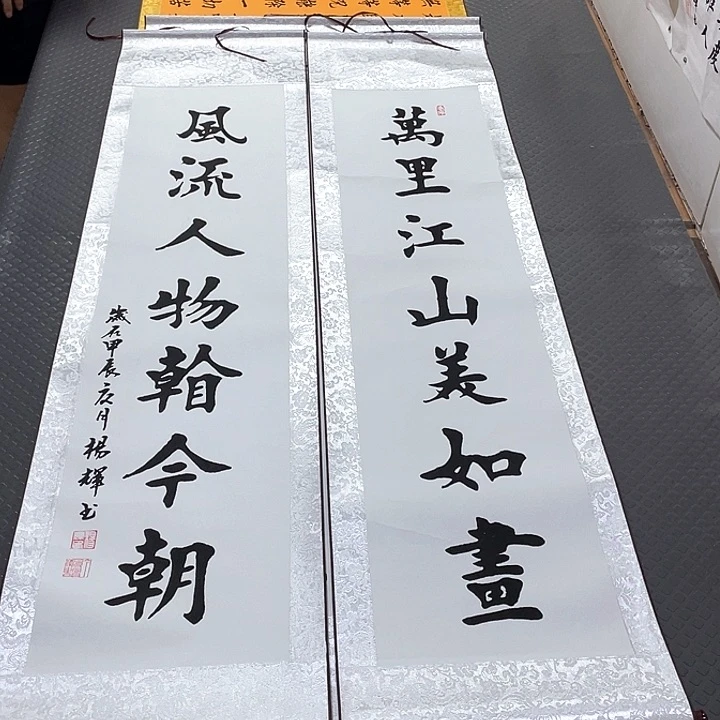 萬里江山美如畫
風流人物看今朝
歲在甲辰夏月楊輝书